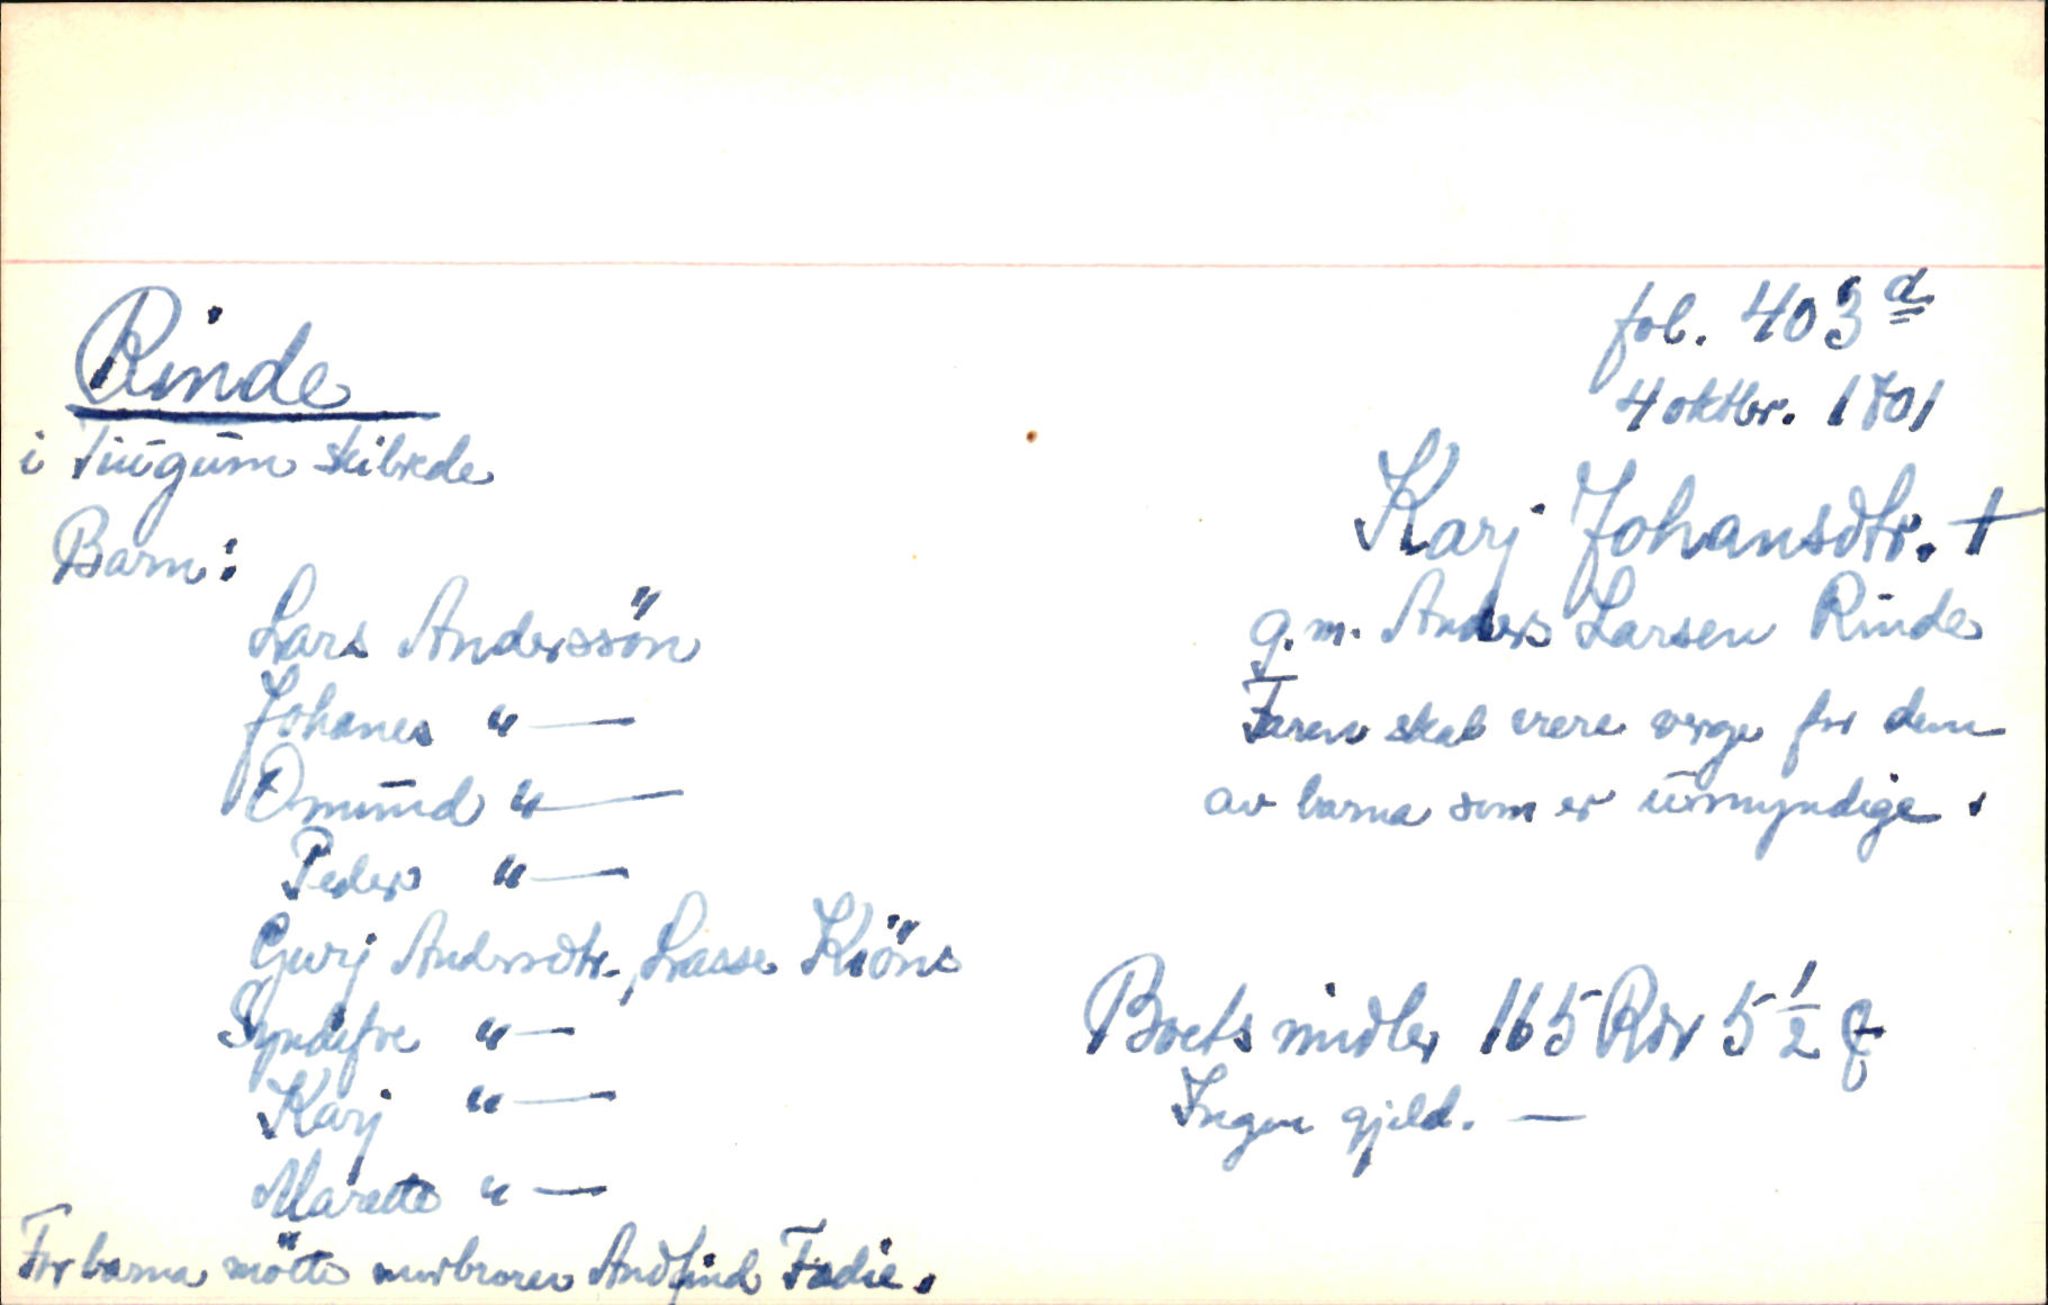 fol. 403 a
4 oktbr. 1701
Rinde
i Tiugum skibrede
Karj Johansdtr. †
g.m. Anders Larsen Rinde
Faren skal være verge for dem
av barna som er umyndige.
Barn:
Lars Anderssön
Johanes " —
Omund " —
Peder " —
Gurj Andersdtr., Lasse Kröns
Syndefve " —
Karj " —
Marette " —
For barna mötte morbroren Andfind Fadie.
Boets midler 165 Rdr 5 1/2 β
Ingen gjeld. —